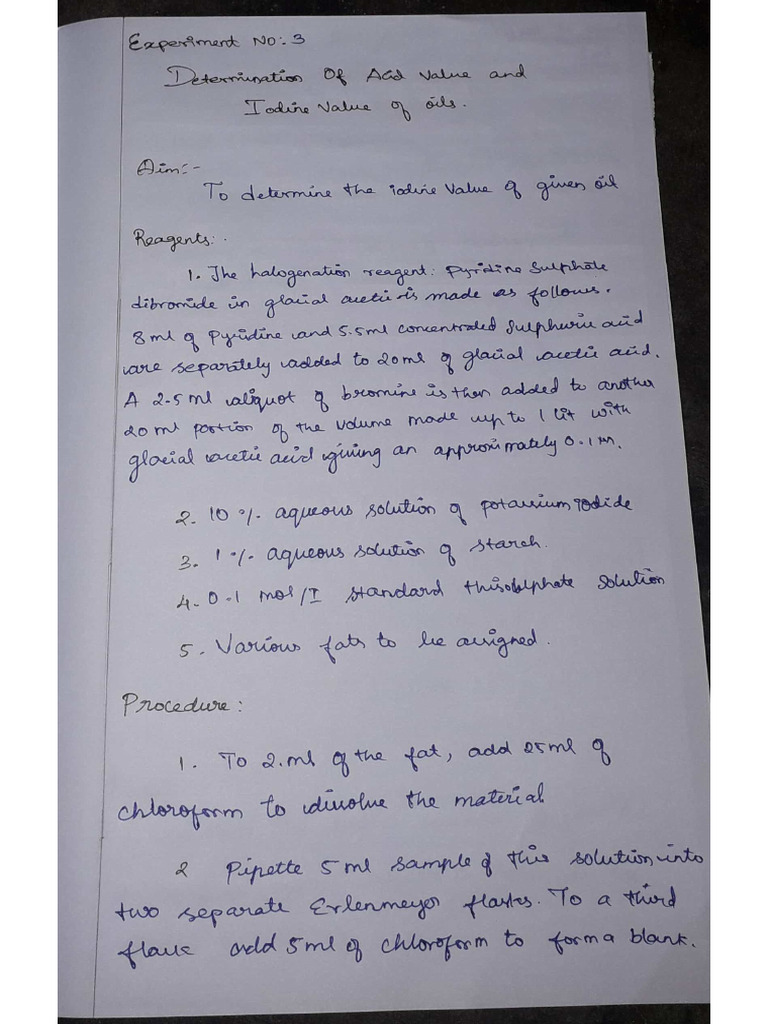 Experiment No: 3
Determination Of Acid Value and
Iodine Value of oils.
Aim:-
To determine the iodine Value of given oil
Reagents:.
1. The halogenation reagent: Pyridine Sulphate
dibromide in glacial acetic is made as follows.
8 ml of Pyridine and 5.5ml concentrated Sulphuric acid
are separately added to 20ml of glacial acetic acid.
A 2.5 ml aliquot of bromine is then added to another
20 ml portion of the volume made up to 1 lit with
glacial acetic acid giving an approximately 0.1 m.
2. 10 % aqueous solution of potassium iodide
3. 1 % aqueous solution of starch.
4. 0.1 mol/I standard solution
5. Various fats to be assigned.
Procedure:
1. To 2.ml of the fat, add 25ml of
chloroform to dissolve the material
2 Pipette 5 ml sample of this solution into
two separate Erlenmeyer flasks. To a third
flask add 5ml of chloroform to form a blank.